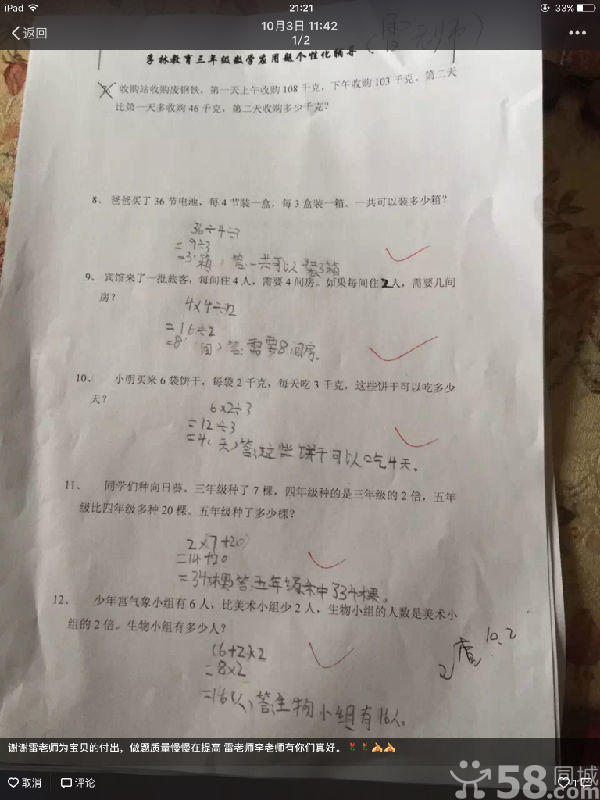 iPad
21:21
33%
返回
10月3日 11:42
1/2
李林教育三年级数学应用题个性化辅导
(雷老师)
收购站收购废钢铁，第一天上午收购108千克，下午收购103千克，第二天
比第一天多收购46千克，第二天收购多少千克？
8、爸爸买了36节电池，每4节装一盒，每3盒装一箱，一共可以装多少箱？
36÷4÷3
=9÷3
=3(箱) 答:一共可以装3箱
9、宾馆来了一批旅客，每间住4人，需要4间房。如果每间住2人，需要几间
房？
4×4÷2
=16÷2
=8(间)答:需要8间房。
10、小明买来6袋饼干，每袋2千克，每天吃3千克，这些饼干可以吃多少
天？
6×2÷3
=12÷3
=4(天)答:这些饼干可以吃4天.
11、同学们种向日葵。三年级种了7棵，四年级种的是三年级的2倍，五年
级比四年级多种20棵。五年级种了多少棵？
2×(7+20)
=14+20
=34棵 答:五年级种了34棵。
12、少年宫气象小组有6人，比美术小组少2人，生物小组的人数是美术小
组的2倍。生物小组有多少人？
(6+2)×2
=8×2
=16(人)答:生物小组有16人.
查 10.2
谢谢雷老师为宝贝的付出，做题质量慢慢在提高 雷老师李老师有你们真好。
取消
评论
58同城